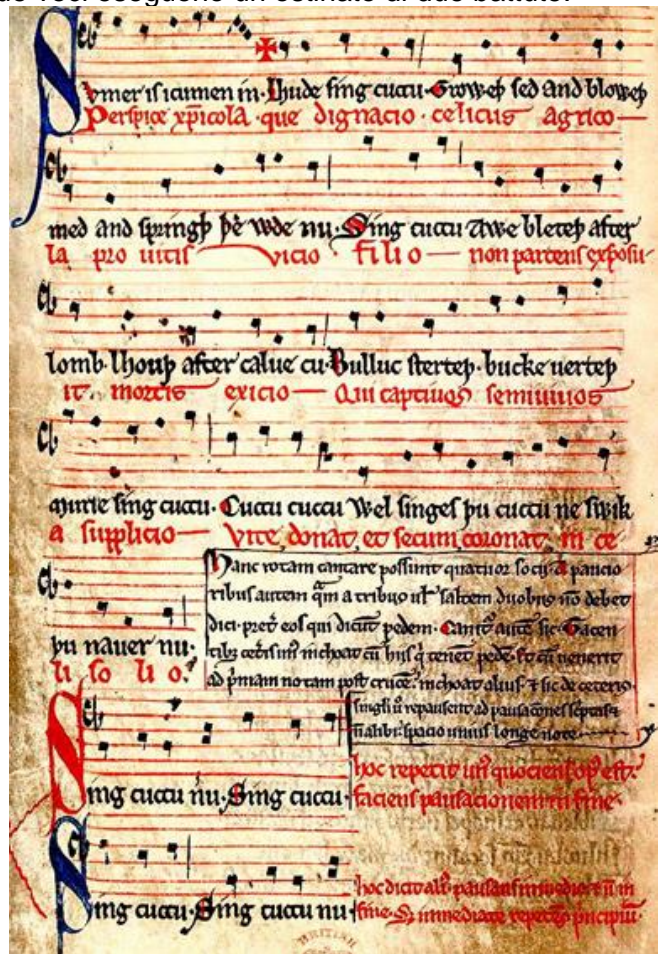 due voci eseguono un ostinato di due battute.
Sumer is icumen in. Lhude sing cuccu. Groweþ sed and bloweþ
Perspice xp̄icola. que dignacio. celicus agrico—
med and springþ þe wde nu. Sing cuccu Awe bleteþ after
la pro uitis vicio. filio— non parcens exposu-
lomb. lhouþ after calue cu. Bulluc sterteþ. bucke uerteþ
it. mortis exicio— Qui captiuos semiuiuos
murie sing cuccu. Cuccu cuccu Wel singes þu cuccu ne swik
a supplicio— Vite donat, et secum coronat. in ce
þu nauer nu.
li soli o.
Hanc rotam cantare possunt quatuor socij. A paucio
ribus autem q̄m a tribus uł saltem duobus nō debet
dici. pret̉ eos qui dicūt pedem. Canit᷑ autē sic. Tacen
tibȝ cet̉is un᷒ inchoat cū hiis q̇ tenēt pedē. Et cū uenerit
ad p̄mam notam post crucē. inchoat alius. ⁊ sic de ceteris.
singĺi ū repausent ad pausacōnes sc̉ptas ⁊
n̄ alibi. spacio unius longe note.
Sing cuccu nu. Sing cuccu.
hoc repetit un᷒ quociens op᷒ est.
faciens pausacionem in fine.
Sing cuccu. Sing cuccu nu
hoc dicit ali᷒. pausans in medio. ⁊ n̄ in
fine. Sȝ immediate repetēs p̄ncipiū.
BRITISH